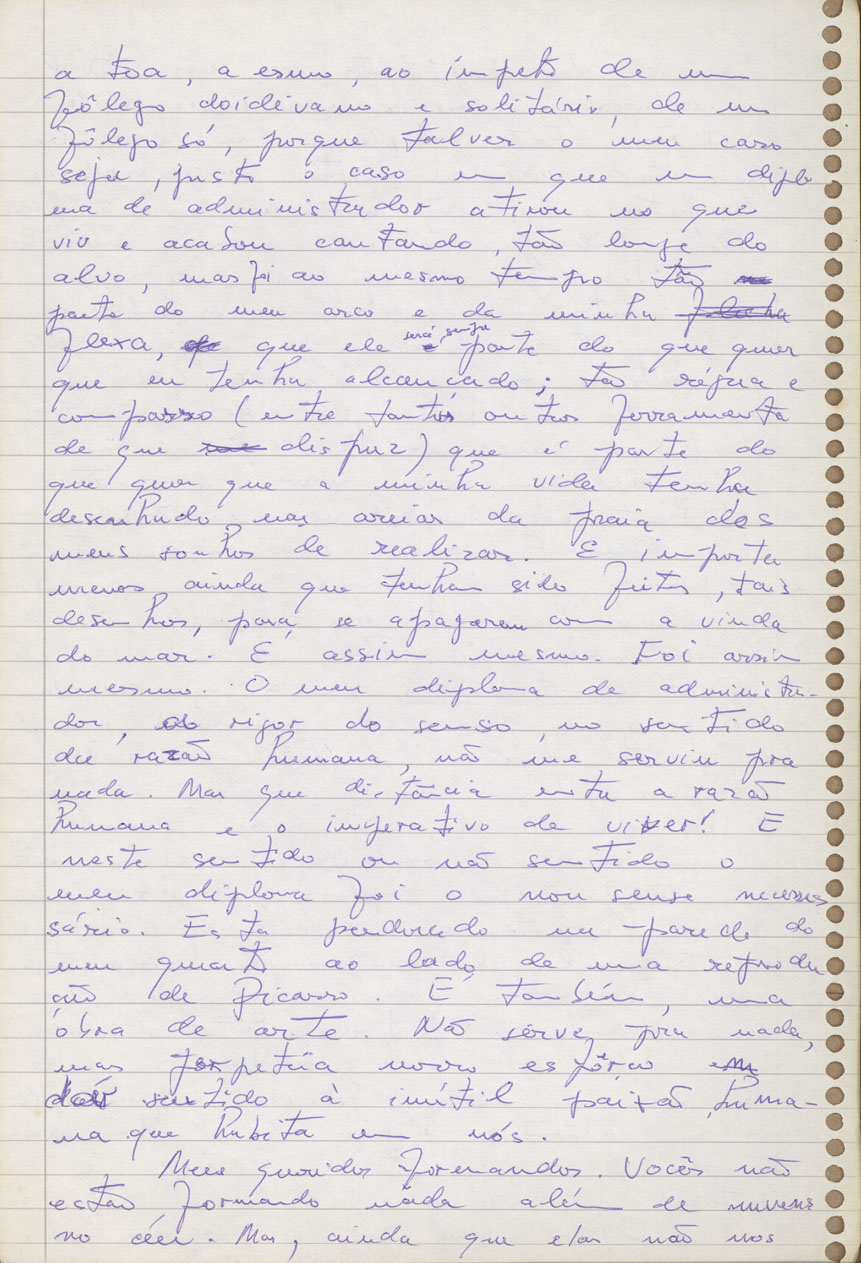 a toa, a esmo, ao ímpeto de um
fôlego doidivano e solitário, de um
fôlego só, porque talvez o meu caso
seja, justo o caso em que um diplo
ma de administrador atirou no que
viu e acabou cantando, tão longe do
alvo, mas foi ao mesmo tempo tão
parte do meu arco e da minha flecha
flexa, que ele será sempre parte do que quer
que eu tenha alcançado; tão régua e
compasso (entre tantos outros ferramenta
de que dispuz) que é parte do
que quer que a minha vida tenha
desenhado nas areias da praia dos
meus sonhos de realizar. E importa
menos ainda que tenham sido feitos, tais
desenhos, para se apagarem com a vinda
do mar. É assim mesmo. Foi assim
mesmo. O meu diploma de administra-
dor, no rigor do senso, no sentido
da razão humana, não me serviu pra
nada. Mas que distância entre a razão
humana e o imperativo de viver! E
neste sentido ou não sentido o
meu diploma foi o non sense neces
sário. Está pendurado na parede do
meu quarto ao lado de uma reprodu
ção de Picasso. É também, uma
obra de arte. Não serve pra nada,
mas perpetúa nosso esfôrço em
dar sentido à inútil paixão huma-
na que habita em nós.
Meus queridos formandos. Vocês não
estão formando nada além de nuvens
no céu. Mas, ainda que elas não nos